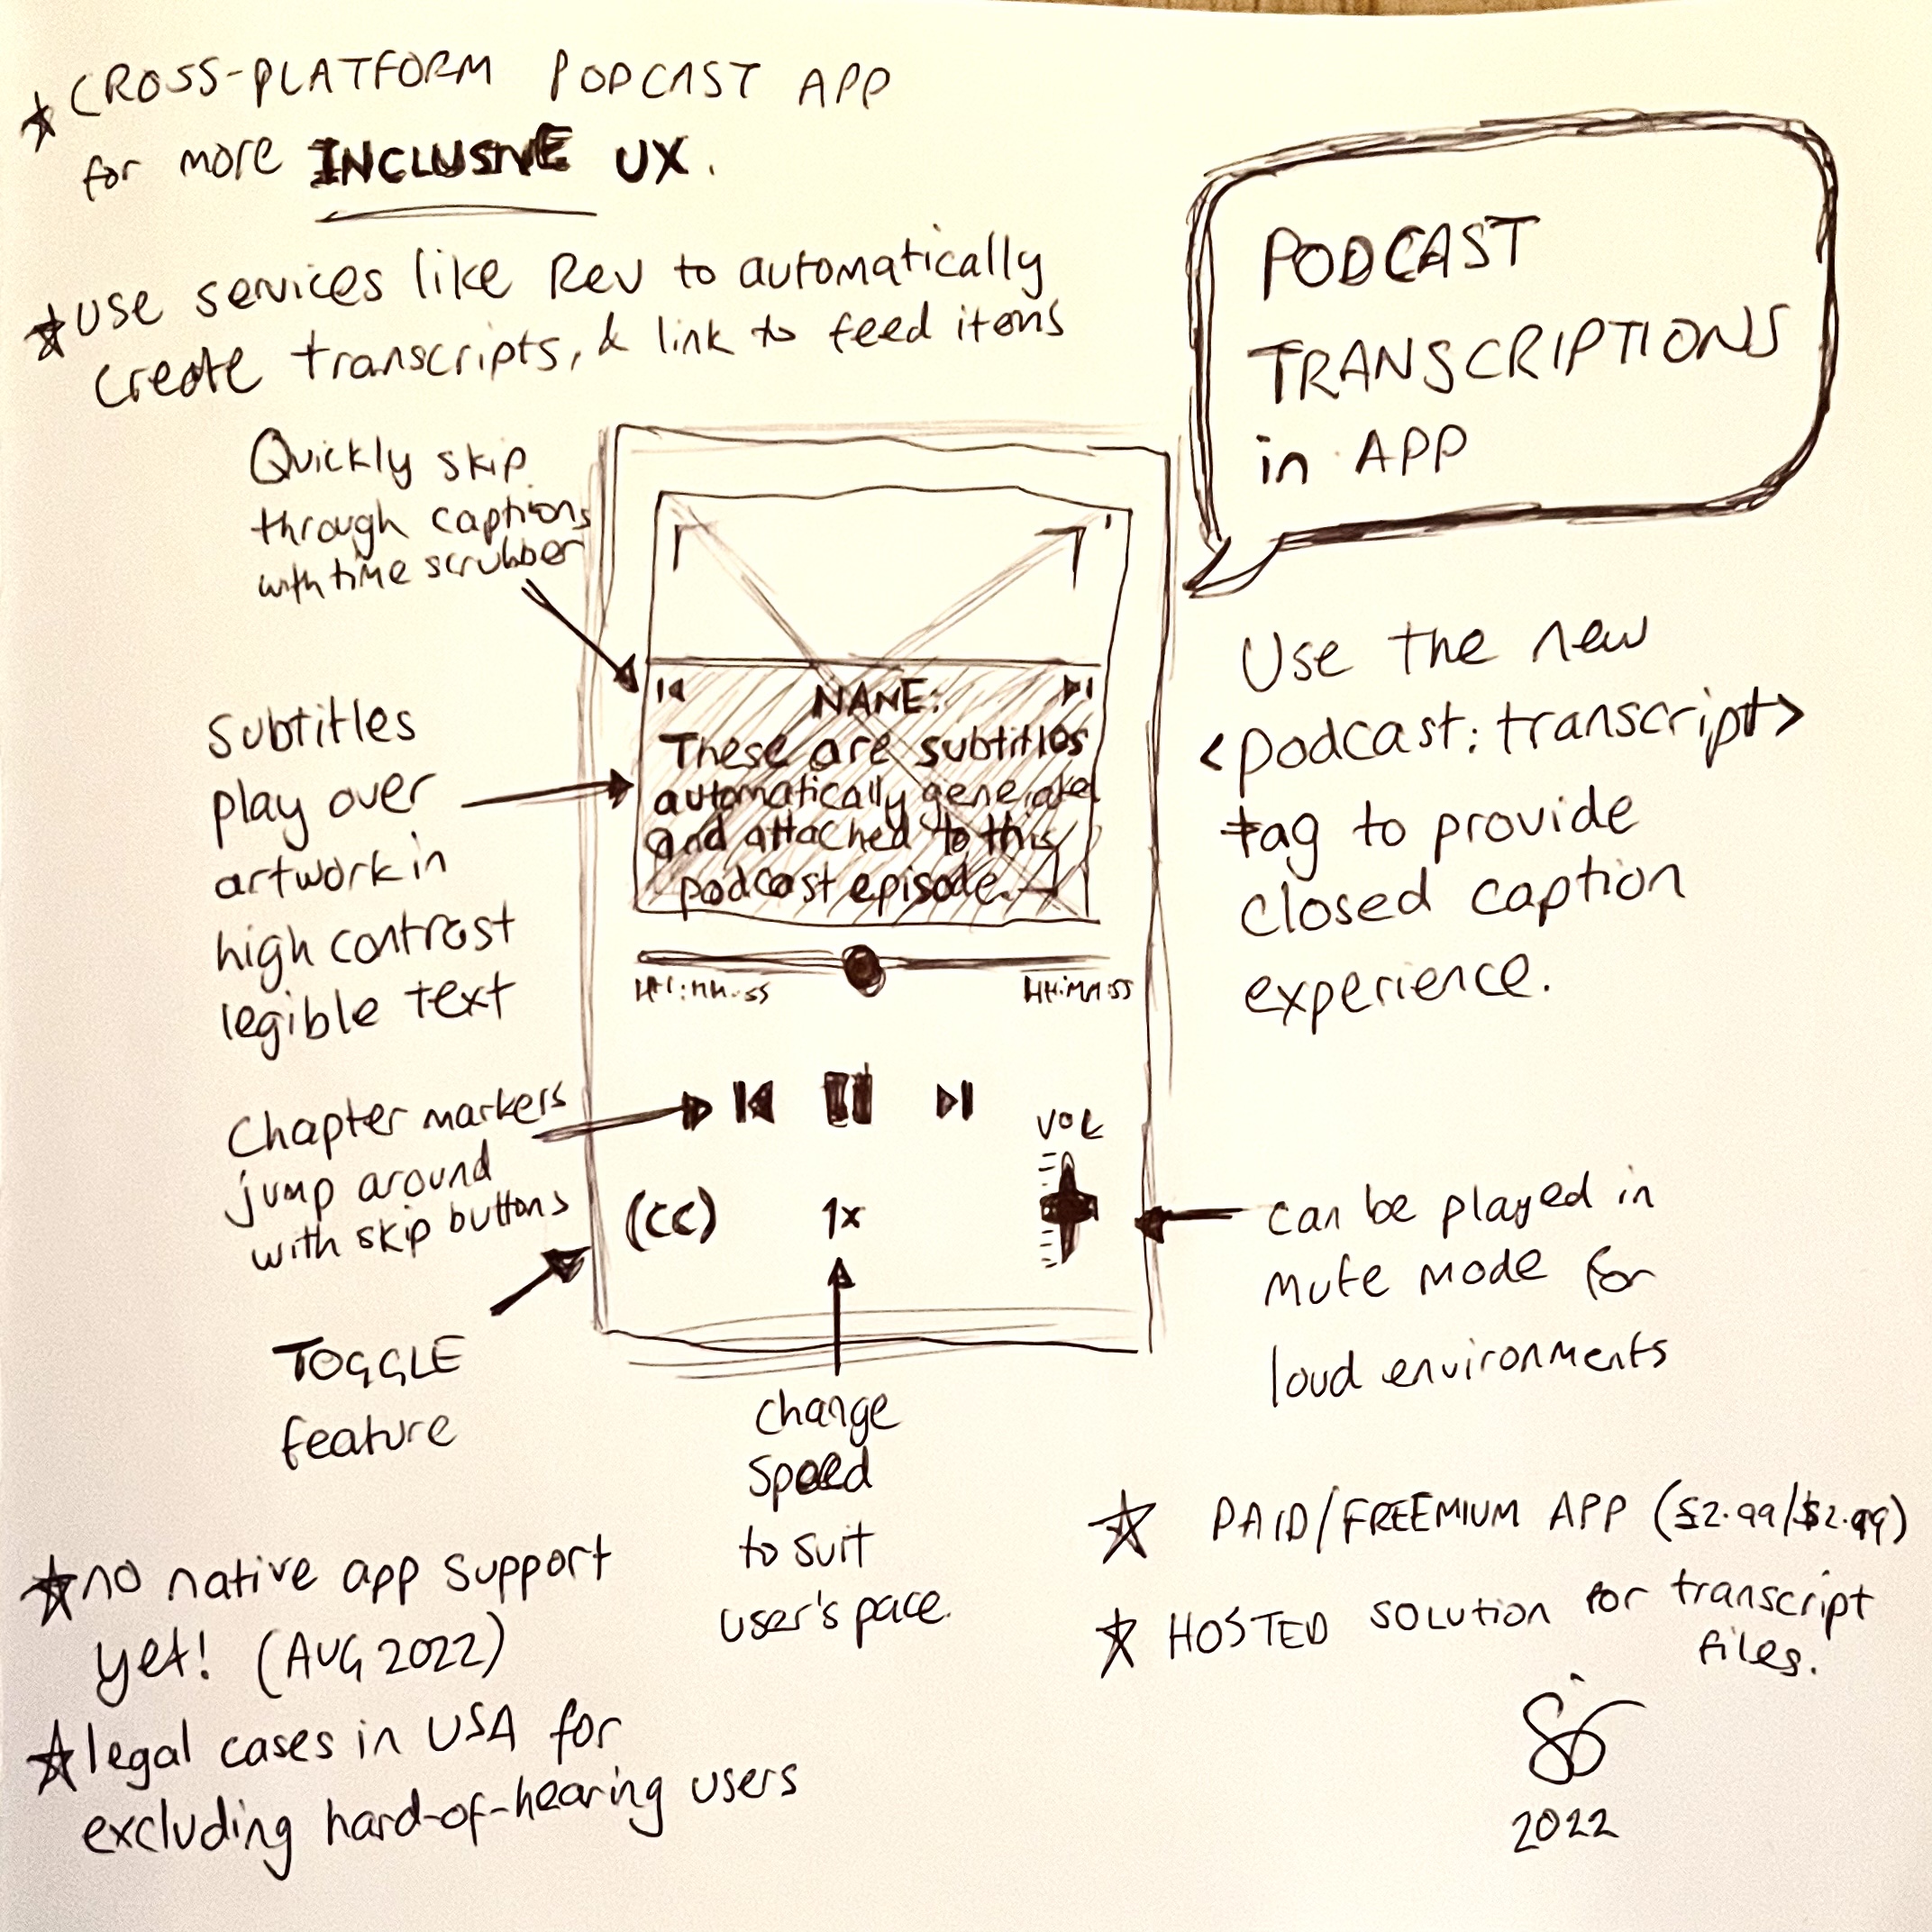 ★ CROSS-PLATFORM PODCAST APP
for more INCLUSIVE UX.
★ use services like Rev to automatically
create transcripts, & link to feed items
PODCAST
TRANSCRIPTIONS
in APP
Quickly skip
through captions
with time scrubber
Subtitles
play over
artwork in
high contrast
legible text
Chapter markers
jump around
with skip buttons
TOGGLE
feature
NAME:
These are subtitles
automatically generated
and attached to this
podcast episode.
HH:MM:SS
HH:MM:SS
VOL
(CC)
1x
change
speed
to suit
user's pace.
Use the new
<podcast:transcript>
tag to provide
closed caption
experience.
can be played in
mute mode for
loud environments
★ no native app support
yet! (AUG 2022)
★ legal cases in USA for
excluding hard-of-hearing users
★ PAID/FREEMIUM APP (£2.99/$2.99)
★ HOSTED solution for transcript
files.
2022